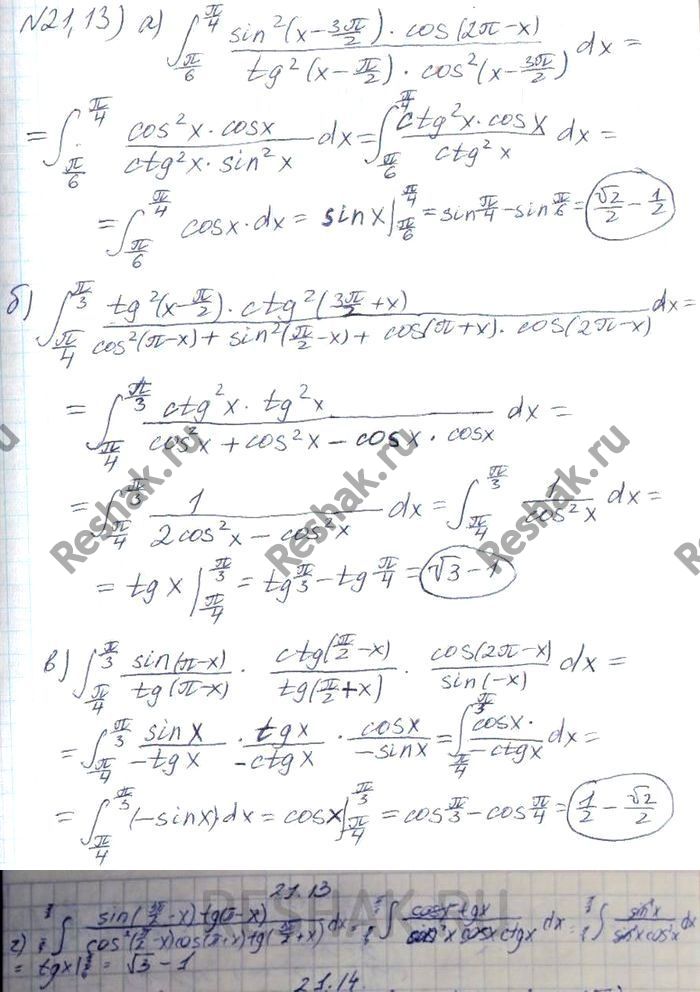 N21,13) а) ∫_{π/6}^{π/4} sin²(x-3π/2)·cos(2π-x) / tg²(x-π/2)·cos²(x-3π/2) dx =
= ∫_{π/6}^{π/4} cos²x·cosx / ctg²x·sin²x dx = ∫_{π/6}^{π/4} ctg²x·cosx / ctg²x dx =
= ∫_{π/6}^{π/4} cosx·dx = sinx|_{π/6}^{π/4} = sin π/4 - sin π/6 = √2/2 - 1/2
б) ∫_{π/4}^{π/3} tg²(x-π/2)·ctg²(3π/2+x) / cos²(π-x)+sin²(π/2-x)+cos(π+x)·cos(2π-x) dx =
= ∫_{π/4}^{π/3} ctg²x·tg²x / cos²x+cos²x-cosx·cosx dx =
= ∫_{π/4}^{π/3} 1 / 2cos²x-cos²x dx = ∫_{π/4}^{π/3} 1 / cos²x dx =
= tgx|_{π/4}^{π/3} = tg π/3 - tg π/4 = √3-1
в) ∫_{π/4}^{π/3} sin(π-x) / tg(π-x) · ctg(π/2-x) / tg(π/2+x) · cos(2π-x) / sin(-x) dx =
= ∫_{π/4}^{π/3} sinx / -tgx · tgx / -ctgx · cosx / -sinx = ∫_{π/4}^{π/3} cosx· / -ctgx dx =
= ∫_{π/4}^{π/3} (-sinx)dx = cosx|_{π/4}^{π/3} = cos π/3 - cos π/4 = 1/2 - √2/2
Reshak.ru Reshak.ru
RESHAK.RU
21.13
г) ∫ sin(3π/2-x)tg(π-x) dx =
= tgx| = √3-1
21.14.